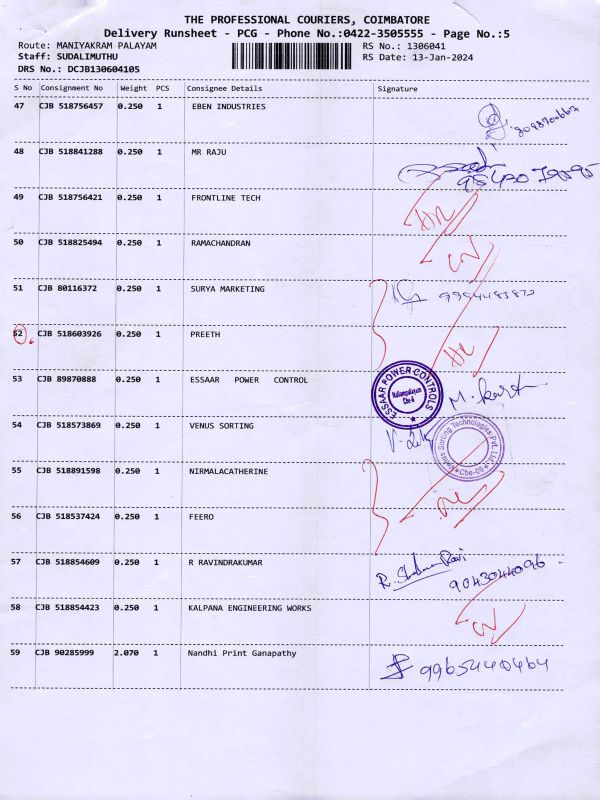 THE PROFESSIONAL COURIERS, COIMBATORE
Delivery Runsheet - PCG - Phone No.:0422-3505555 - Page No.:5
Route: MANIYAKRAM PALAYAM RS No.: 1306041
Staff: SUDALIMUTHU RS Date: 13-Jan-2024
DRS No.: DCJB130604105
S No Consignment No Weight PCS Consignee Details Signature
47 CJB 518756457 0.250 1 EBEN INDUSTRIES
48 CJB 518841288 0.250 1 MR RAJU
49 CJB 518756421 0.250 1 FRONTLINE TECH
50 CJB 518825494 0.250 1 RAMACHANDRAN
51 CJB 80116372 0.250 1 SURYA MARKETING
52 CJB 518603926 0.250 1 PREETH
53 CJB 89870888 0.250 1 ESSAAR POWER CONTROL
ESSAAR POWER CONTROLS
54 CJB 518573869 0.250 1 VENUS SORTING
Venus Sorting Technologies Pvt. Ltd.
55 CJB 518891598 0.250 1 NIRMALACATHERINE
56 CJB 518537424 0.250 1 FEERO
57 CJB 518854609 0.250 1 R RAVINDRAKUMAR 9043044096
58 CJB 518854423 0.250 1 KALPANA ENGINEERING WORKS
59 CJB 90285999 2.070 1 Nandhi Print Ganapathy 9965440464